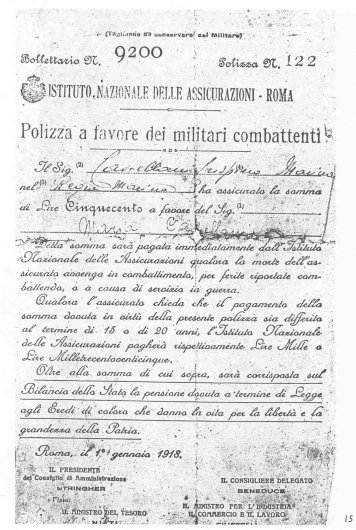 (Tagliando da conservarsi dal Militare)
Bollettario N. 9200 Polizza N. 122
ISTITUTO NAZIONALE DELLE ASSICURAZIONI - ROMA
Polizza a favore dei militari combattenti
Il Sig. (2)
nel (3) Regia Marina ha assicurato la somma
di Lire Cinquecento a favore del Sig. (4)
Maria
Detta somma sarà pagata immediatamente dall'Istituto
Nazionale delle Assicurazioni qualora la morte dell'as-
sicurato avvenga in combattimento, per ferite riportate com-
battendo, o a causa di servizio in guerra.
Qualora l'assicurato chieda che il pagamento della
somma dovuta in virtù della presente polizza sia differito
al termine di 15 o di 20 anni, l'Istituto Nazionale
delle Assicurazioni pagherà rispettivamente Lire Mille o
Lire Milletrecentoventicinque.
Oltre alla somma di cui sopra, sarà corrisposta sul
Bilancio dello Stato la pensione dovuta a termine di Legge
agli Eredi di coloro che danno la vita per la libertà e la
grandezza della Patria.
Roma, il 1° gennaio 1918.
IL PRESIDENTE
del Consiglio di Amministrazione
STRINGHER
IL CONSIGLIERE DELEGATO
BENEDUCE
IL MINISTRO DEL TESORO
NITTI
IL MINISTRO PER L'INDUSTRIA
IL COMMERCIO E IL LAVORO
15